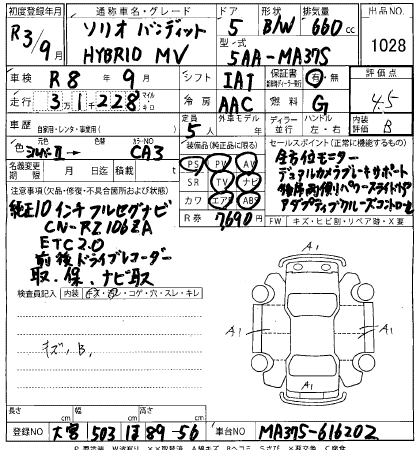 初度登録年月 通称車名・グレード ドア 形状 排気量 出品NO.
R3/9月 ソリオ バンディット HYBRID MV 5 B/W 660 cc 1028
型式 5AA-MA37S
車検 R8年9月 シフト IAT 保証書 有・無 評価点 4.5
走行 3万1228 マイル キロ 冷房 AAC 燃料 G 内装 B
車歴 自家用・レンタ・事業用( ) 定員 5人 外車モデル ディーラー 並行 ハンドル 左・右
色 シルバーII→ カラーNO CA3
装備品(純正品に限る) セールスポイント(正常に機能するもの)
名義変更期限 月 日 積載
PS PW AW
SR TV ナビ
カワ エアB ABS
R券 7,690円
全方位モニター
デュアルカメラブレーキサポート
両側パワースライドドア
アダプティブクルーズコントロール
注意事項(欠品・修復・不具合箇所および状態)
純正10インチフルセグナビ
CN-RZ106ZA
ETC2.0
前後ドライブレコーダー
取、保、ナビ取
FW キズ・ヒビ割・リペア跡・X要
検査員記入 内装 キズ・コゲ・穴・スレ・キレ
キズ、B、
A1
A1 A1
A1
長さ cm 幅 cm 高さ cm
登録NO 大宮 503 ほ 89-56 車台NO MA37S-616202